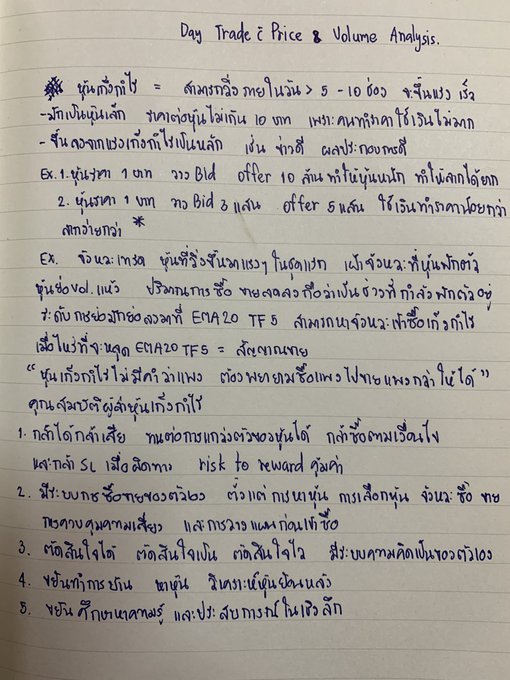 Day Trade c̄ Price & Volume Analysis.
หุ้นเก็งกำไร = สามารถวิ่งภายในวัน > 5 - 10 ช่อง จะขึ้นแรง เร็ว
- มักเป็นหุ้นเล็ก ราคาต่อหุ้นไม่เกิน 10 บาท เพราะคนทำราคาใช้เงินไม่มาก
- ขึ้นลงจากแรงเก็งกำไรเป็นหลัก เช่น ข่าวดี ผลประกอบการดี
Ex. 1. หุ้นราคา 1 บาท วาง Bid offer 10 ล้าน ทำให้หุ้นหนัก ทำให้ลากได้ยาก
2. หุ้นราคา 1 บาท วาง Bid 3 แสน offer 5 แสน ใช้เงินทำราคาน้อยกว่า
ลากง่ายกว่า *
Ex. จังหวะเทรด หุ้นที่วิ่งขึ้นมาแรงๆ ในชุดแรก เฝ้าจังหวะที่หุ้นพักตัว
หุ้นย่อ vol. แห้ง ปริมาณการซื้อ ขายลดลง ถือว่าเป็นช่วงที่กำลังพักตัวอยู่
ระดับการย่อมักย่อลงมาที่ EMA20 TF5 สามารถหาจังหวะเข้าซื้อเก็งกำไร
เมื่อไหร่ที่จะหลุด EMA20 TF5 = สัญญาณขาย
“หุ้นเก็งกำไรไม่มีคำว่าแพง ต้องพยายามซื้อแพงไปขายแพงกว่าให้ได้”
คุณสมบัติผู้ล่าหุ้นเก็งกำไร
1. กล้าได้กล้าเสีย ทนต่อการแกว่งตัวของหุ้นได้ กล้าซื้อตามเงื่อนไข
และกล้า SL เมื่อผิดทาง risk to reward คุ้มค่า
2. มีระบบการซื้อขายของตัวเอง ตั้งแต่ การหาหุ้น การเลือกหุ้น จังหวะซื้อ ขาย
การควบคุมความเสี่ยง และการวางแผนก่อนเข้าซื้อ
3. ตัดสินใจได้ ตัดสินใจเป็น ตัดสินใจไว มีระบบความคิดเป็นของตัวเอง
4. ขยันทำการบ้าน หาหุ้น วิเคราะห์หุ้นย้อนหลัง
5. ขยันศึกษาหาความรู้ และประสบการณ์ในเชิงลึก